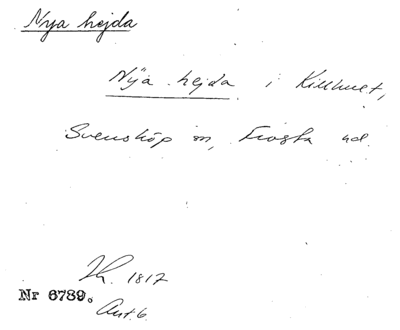 Nya hejda
Nya hejda i Killhult,
Svensköp sn, Frosta hd.
1817
Nr 6789.
Akt 6.